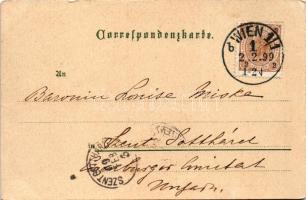 Correspondenzkarte.
WIEN 1/1
1
2.2.99
An
Baronin Louise Miske
in Szent Gotthárd
Eisenburger Comitat
Ungarn